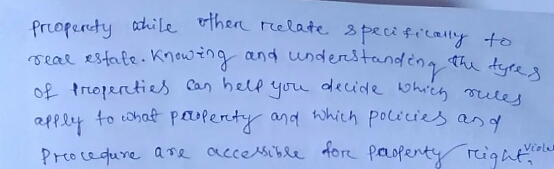 property while other relate specifically to
real estate. Knowing and understanding the types
of properties can help you decide which rules
apply to what property and which policies and
Procedure are accessible for property right.